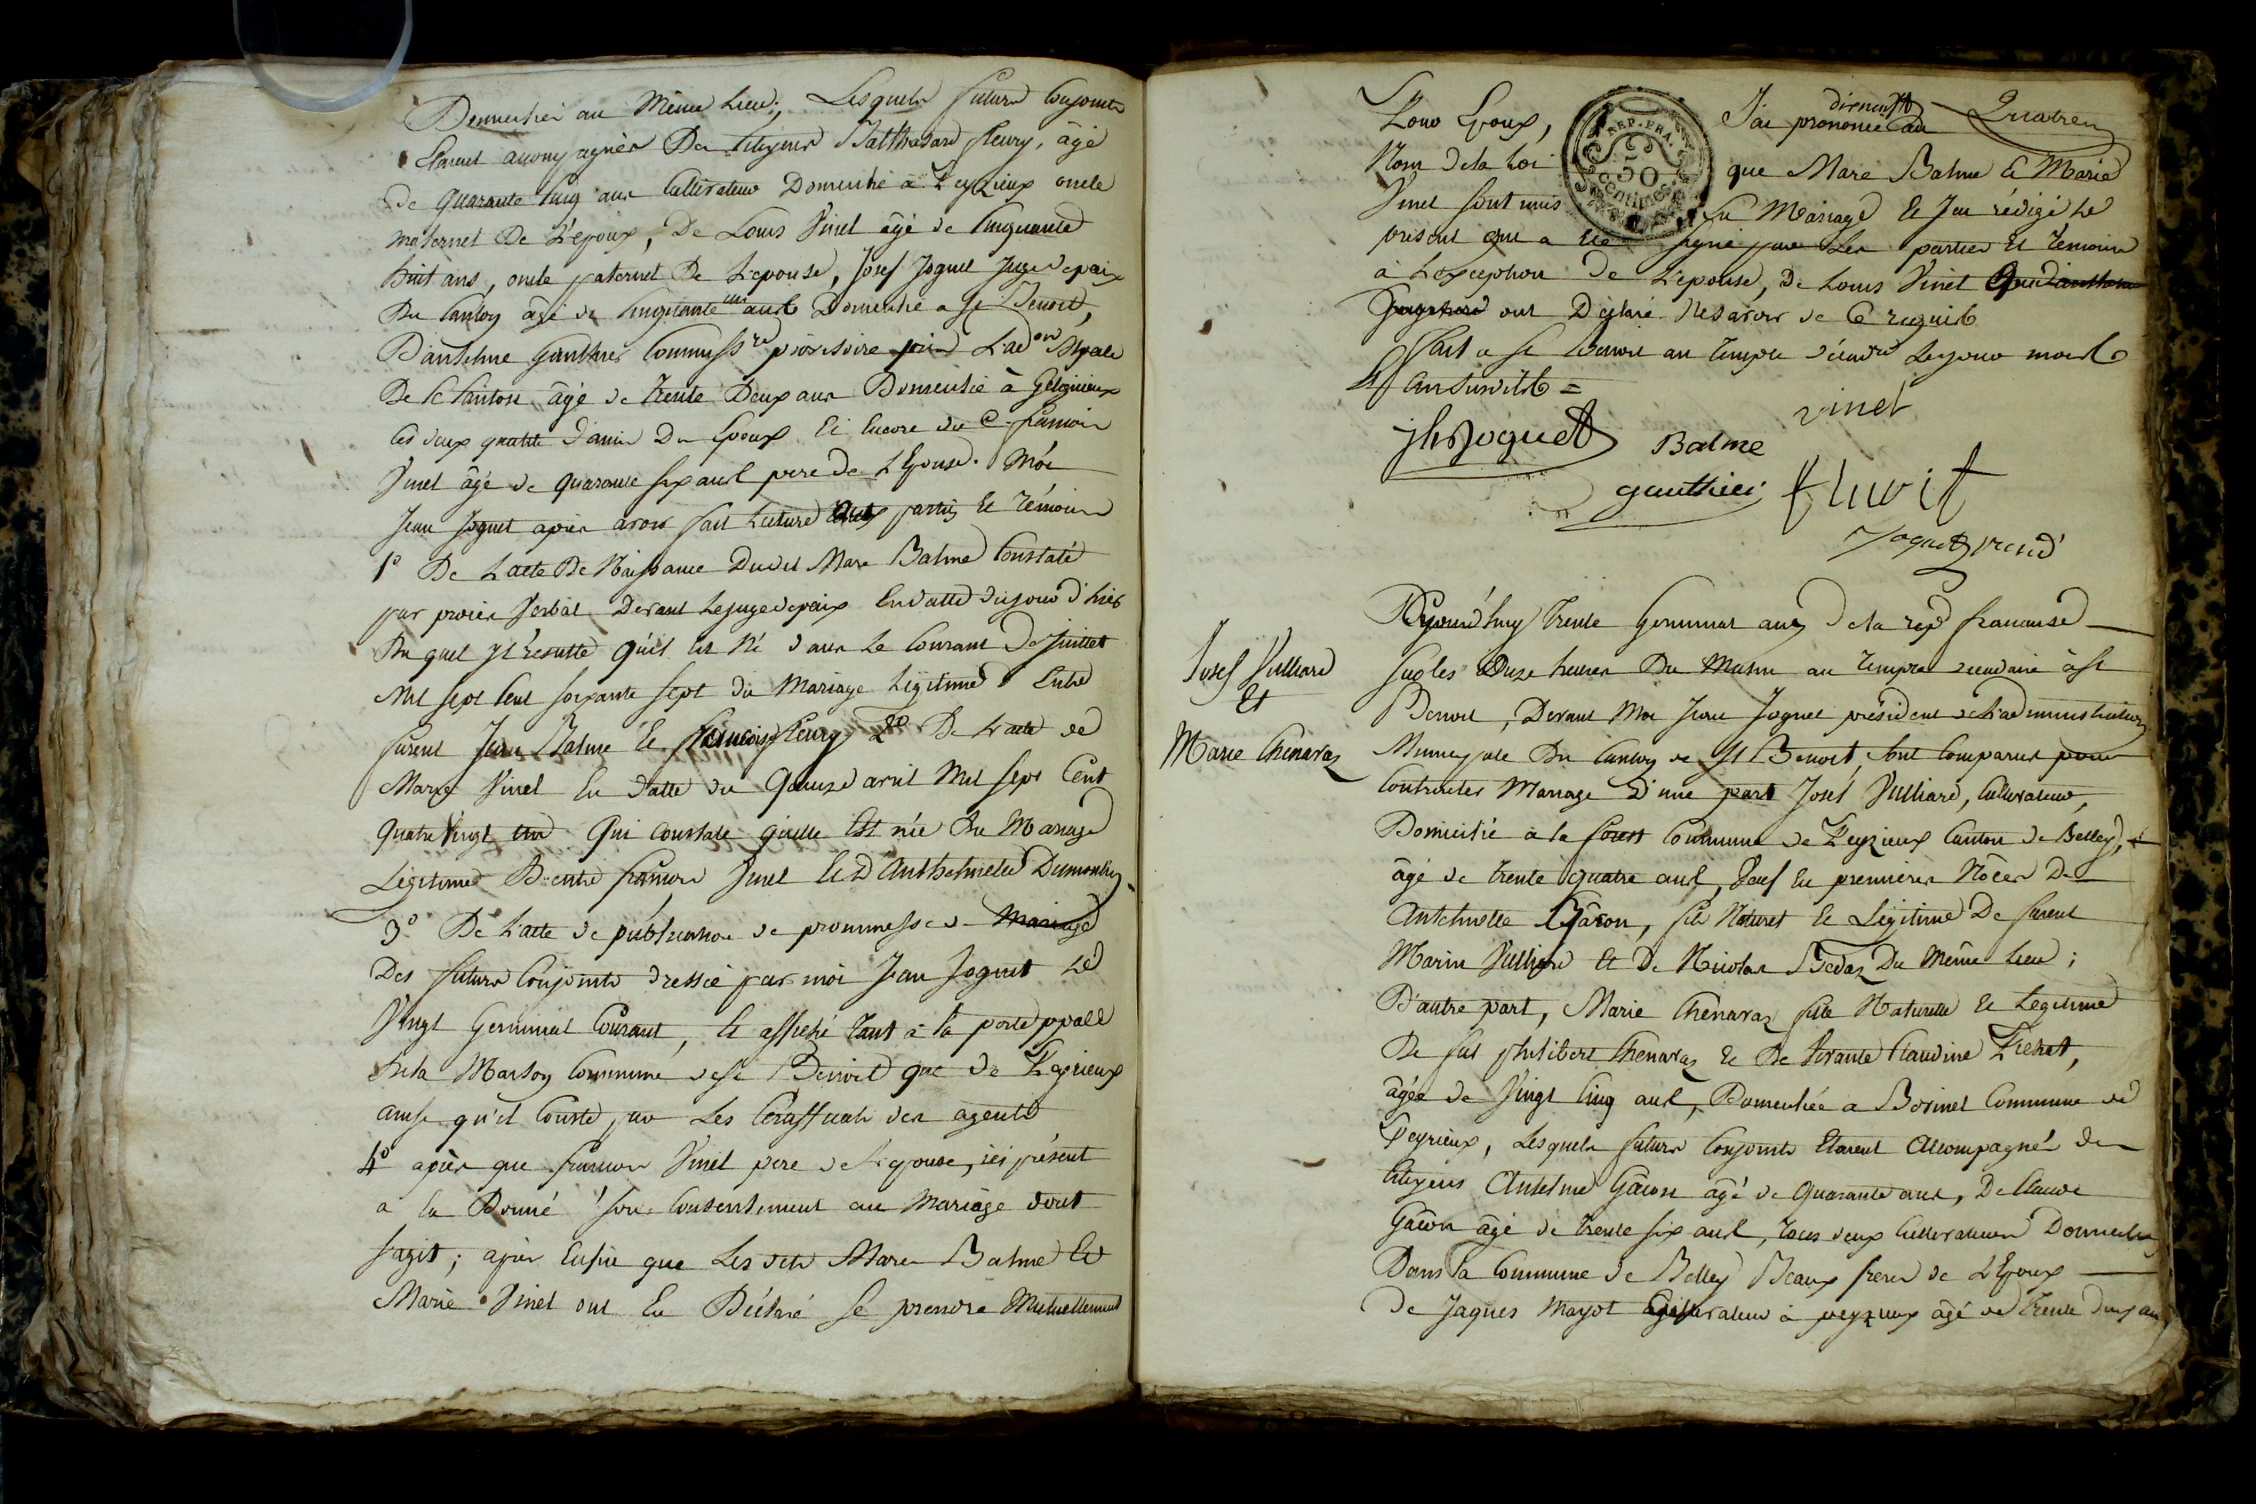 Domicilié au Même Lieu; Lesquels futurs Conjoints
Etaient accompagnés Des Citoyens Balthazard fleury, âgé
de quarante Cinq ans Cultivateur Domicilié à Peyzieux oncle
maternel De L'epoux, De Louis Vinet âgé de Cinquante
huit ans, oncle paternel De L'epouse, Josef Joguet Juge de paix
Du Canton âgé de Cinquante un ans Domicilié a St Benoit,
D'anselme Gauthier Commiss.re provisoire L'ad.on M.pale
De Ce Canton âgé de trente Deux ans Domicilié à
les deux qualité d'amis De Epoux Et Encore du C. francois
Vinet âgé de quarante six ans pere de L'Epouse. Moi
Jean Joguet après avoir fait Lecture aux partis Et témoins
1° De L'acte De Naissance Dudit Marc Balme Constaté
par procès Verbal Devant Le juge de paix En datte du jour d'hier
Du quel il résulte qu'il Est Né dans Le Courant De Juillet
Mil sept Cent soixante sept du Mariage Légitime Entre
furent Jean Balme Et francoise fleury 2° De L'acte de
Marie Vinet En Datte du Quinze avril Mil sept Cent
quatre Vingt un Qui Constate qu'elle Est née Du Mariage
Légitime D'entre francois Vinet Et D'Anthelmette Dumoulin
3° De L'acte de publication de prommesse de Mariage
Des futurs Conjoints dressée par moi Jean Joguet Le
Vingt Germinal Courant, Et affiché tant à la porte ppalle
De la Maison Commune de St Benoit que de Peyrieux
ainsi qu'il Conste par Les Certificats des agents
4° après que francois Vinet pere de L'epouse, ici présent
a Eu Donné son Consentement au Mariage dont
s'agit; après Enfin que Les dits Marc Balme Et
Marie Vinet ont Eu Déclaré Se prendre Mutuellement
Pour Epoux, J'ai prononcé au
Nom De la Loi que Marc Balme Et Marie
Vinet sont unis En Mariage Et J'en rédigé Le
présent qui a été signé par Les parties Et temoins
à L'exception De L'epouse, De Louis Vinet
ont Déclaré Ne savoir de Ce requis
fait a St Benoit au temple décadre Les jour mois
Et an susdits =
REP. FRA.
50
centimes
vinet
Jh Joguet
Balme
gauthier
fluvit
Joguet presid'
Josef Vulliard
Et
Marie Chenavaz
Aujourd'huy trente Germinal an 7 De la rep. francaise
sur les Onze heures Du Matin au temple decadaire à St
Benoit, Devant Moi Jean Joguet président de L'administration
Municipale Du Canton de St Benoit, sont Comparus pour
Contracter Mariage D'une part Josef Vulliard, Cultivateur,
Domicilié à la Commune de Peyzieux Canton de Belley,
âgé de trente quatre ans, Veuf En premières Nôces De
Antelmette Gâcon, fils Naturel Et Légitime De furent
Marin Vulliard Et De Nicolas Bedaz Du Même Lieu;
D'autre part, Marie Chenavaz fille Naturelle Et Légitime
De fut philibert Chenavaz Et De Vivante Claudine
âgée de Vingt Cinq ans, Domiciliée a Borinet Commune de
Peyrieux, Lesquels futurs Conjoints Etaient accompagnés Des
Citoyens Antelme Gâcon âgé de quarante ans, De Claude
Gâcon âgé de trente six ans, tous deux Cultivateurs Domiciliés
Dans la Commune de Belley Beaux freres de L'Epoux
De Jaques Mayot Cultivateur à peyzieux âgé de trente deux ans